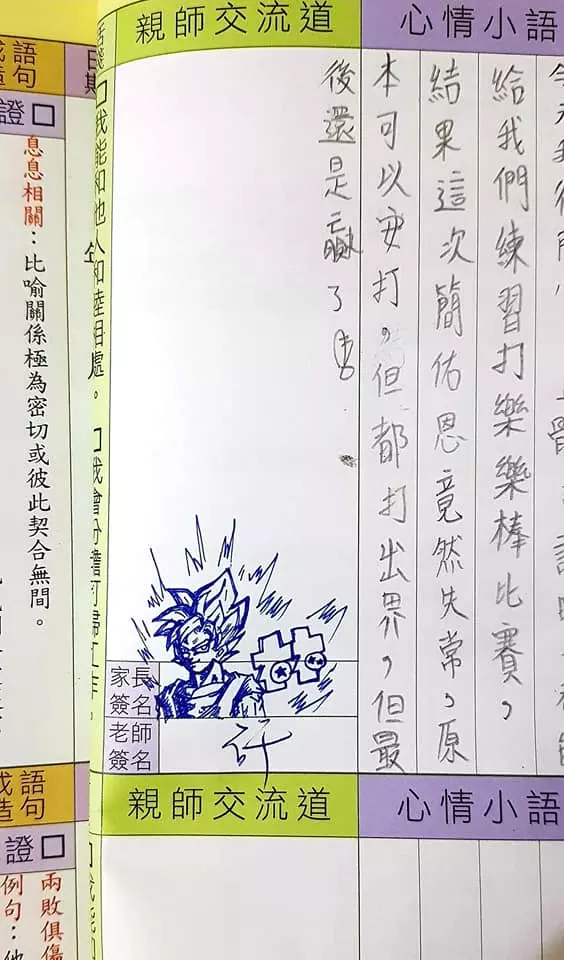 心情小語
給我們練習打樂樂棒比賽，
結果這次簡佑恩竟然失常，原
本可以安打，但都打出界，但最
後還是贏了
親師交流道
家長
簽名
老師
簽名
許
心情小語
親師交流道
日期
我能和他人和睦相處。
我會分擔打掃工作。
語
句
證
息息相關：比喻關係極為密切或彼此契合無間。
語
造句
證
兩敗俱傷
例句：他
我能和